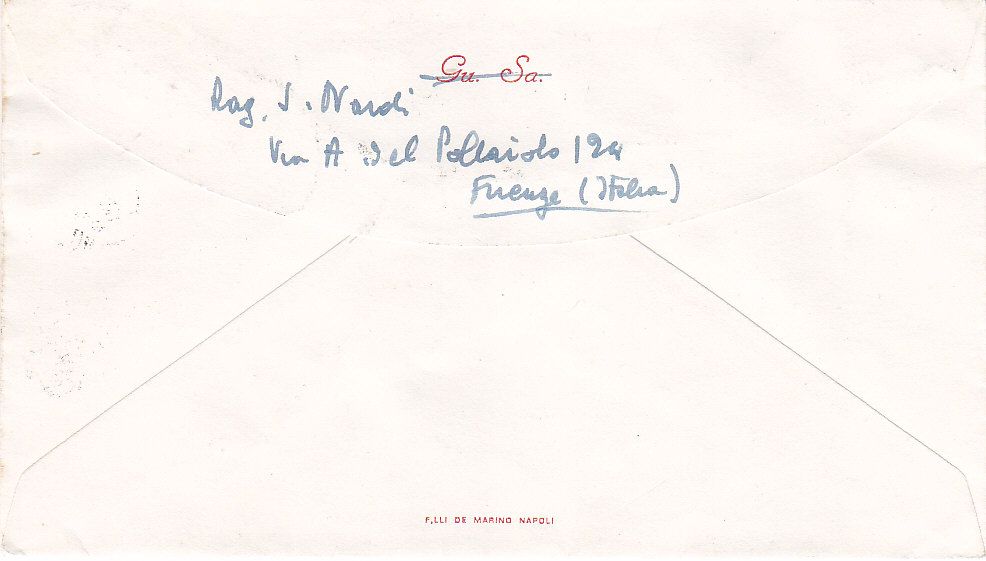 Gu. Sa.
Rag. S. Nardi
Via A del Pollaiolo 124
Firenze (Italia)
F,LLI DE MARINO NAPOLI